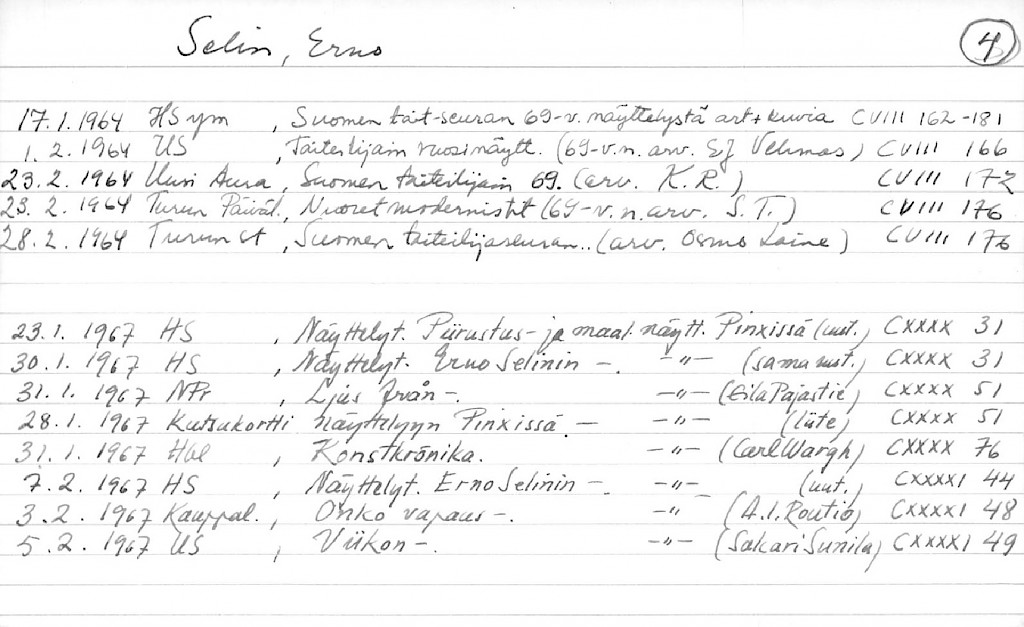 Selin, Erno
4
17.1.1964 HS ym , Suomen tait-seuran 69-v. näyttelystä art+kuvia CVIII 162-181
1.2.1964 US , Taiteilijain vuosinäytt. (69-v.n. arv. EJ Vehmas) CVIII 166
23.2.1964 Uusi Aura , Suomen taiteilijain 69. (arv. K.R.) CVIII 172
23.2.1964 Turun Päiväl. , Nuoret modernistit (69-v.n. arv. S.T.) CVIII 176
28.2.1964 Turun st , Suomen taiteilijaseuran.. (arv. Osmo Laine) CVIII 176
23.1.1967 HS , Näyttelyt. Piirustus- ja maal. näytt. Pinxissä (uut.) CXXXX 31
30.1.1967 HS , Näyttelyt. Erno Selinin -. -"- (sama uut.) CXXXX 31
31.1.1967 NPr , Ljus från -. -"- (Eila Pajastie) CXXXX 51
28.1.1967 Kutsukortti näyttelyyn Pinxissä. - -"- (liite) CXXXX 51
31.1.1967 Hbl , Konstkrönika. -"- (Carl Wargh) CXXXX 76
7.2.1967 HS , Näyttelyt. Erno Selinin -. -"- (uut.) CXXXXI 44
3.2.1967 Kauppal. , Onko vapaus -. -"- (A.I. Routio) CXXXXI 48
5.2.1967 US , Viikon -. -"- (Sakari Sunila) CXXXXI 49